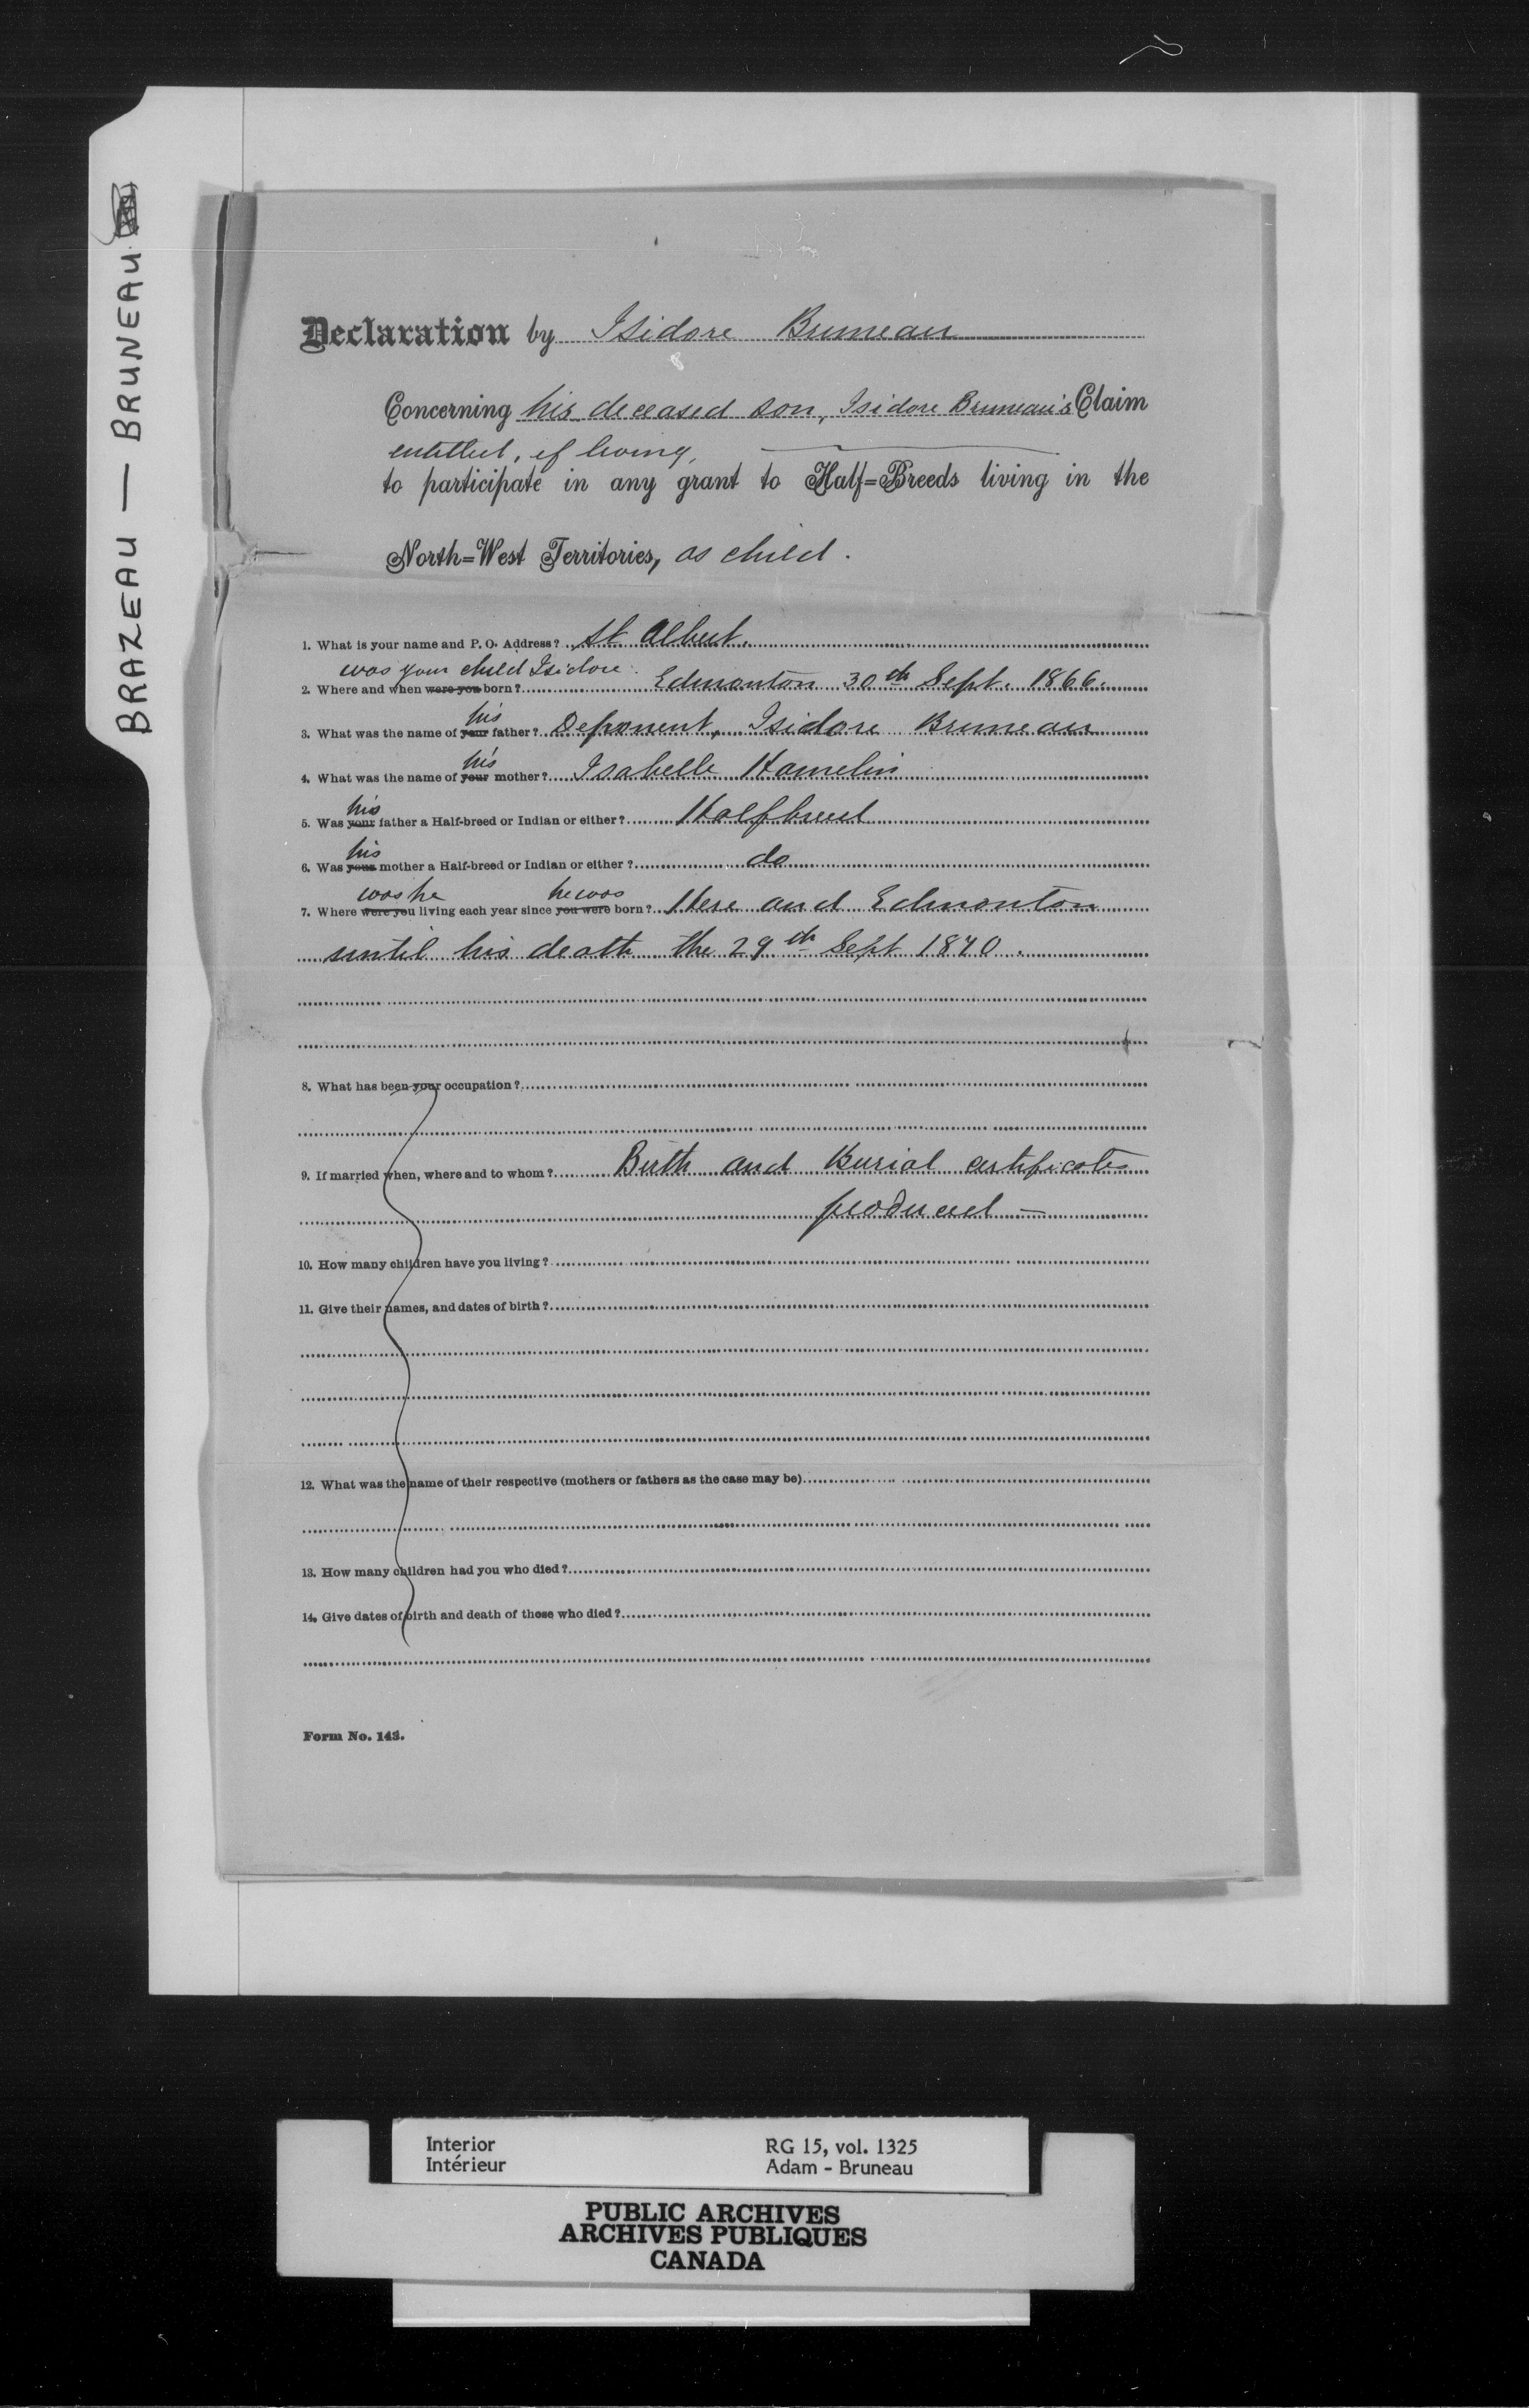 BRAZEAU — BRUNEAU
Declaration by Isidore Bruneau
Concerning his deceased son, Isidore Bruneau's Claim
entitled, if living,
to participate in any grant to Half=Breeds living in the
North=West Territories, as child.
1. What is your name and P. O. Address? St Albert.
was your child Isidore
2. Where and when were you born? Edmonton 30th Sept. 1866.
his
3. What was the name of your father? Deponent, Isidore Bruneau
his
4. What was the name of your mother? Isabelle Hamelin
his
5. Was your father a Half-breed or Indian or either? Halfbreed
his
6. Was your mother a Half-breed or Indian or either? do
was he he was
7. Where were you living each year since you were born? Here and Edmonton
until his death the 29th Sept 1870.
8. What has been your occupation?
9. If married when, where and to whom? Birth and Burial certificates
produced —
10. How many children have you living?
11. Give their names, and dates of birth?
12. What was the name of their respective (mothers or fathers as the case may be)
13. How many children had you who died?
14. Give dates of birth and death of those who died?
Form No. 143.
Interior RG 15, vol. 1325
Intérieur Adam - Bruneau
PUBLIC ARCHIVES
ARCHIVES PUBLIQUES
CANADA